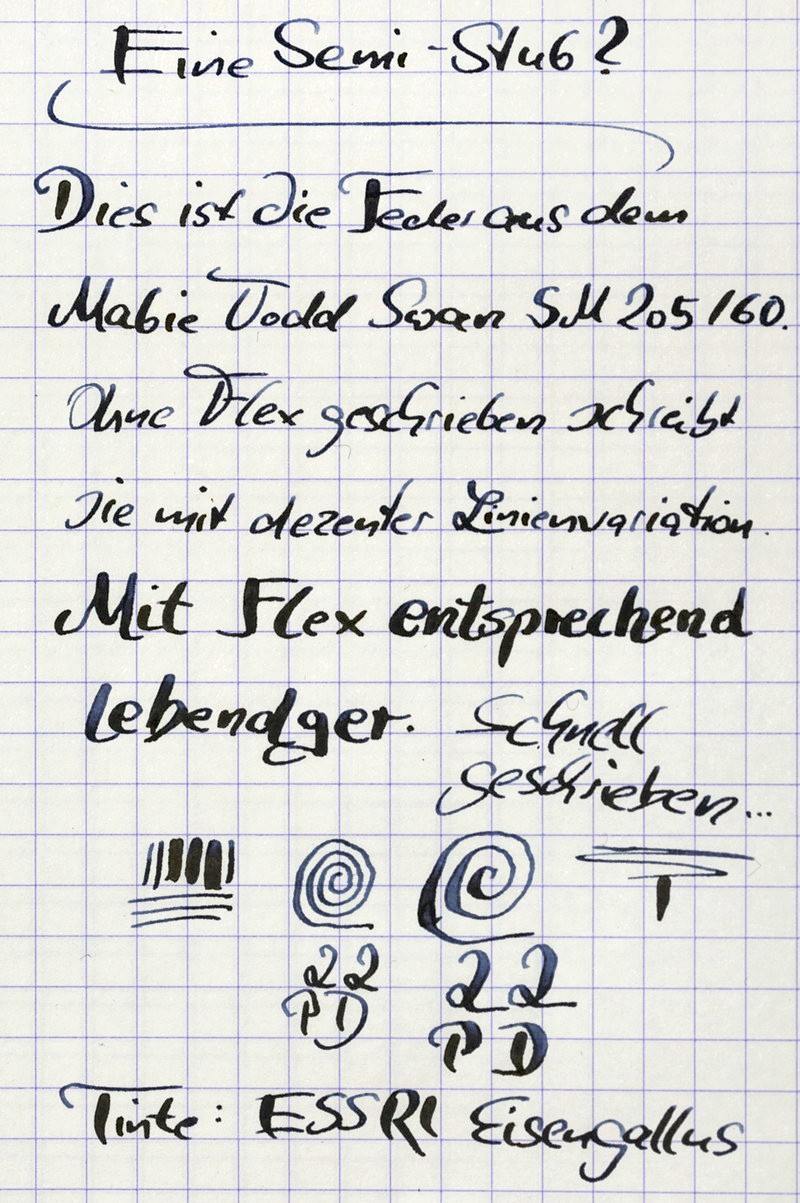 Eine Semi-Stub?
Dies ist die Feder aus dem
Mabie Todd Swan SM 205/60.
Ohne Flex geschrieben schreibt
sie mit dezenter Linienvariation.
Mit Flex entsprechend
lebendger. Schnell
geschrieben...
22 22
PD PD
Tinte: ESSRI Eisengallus